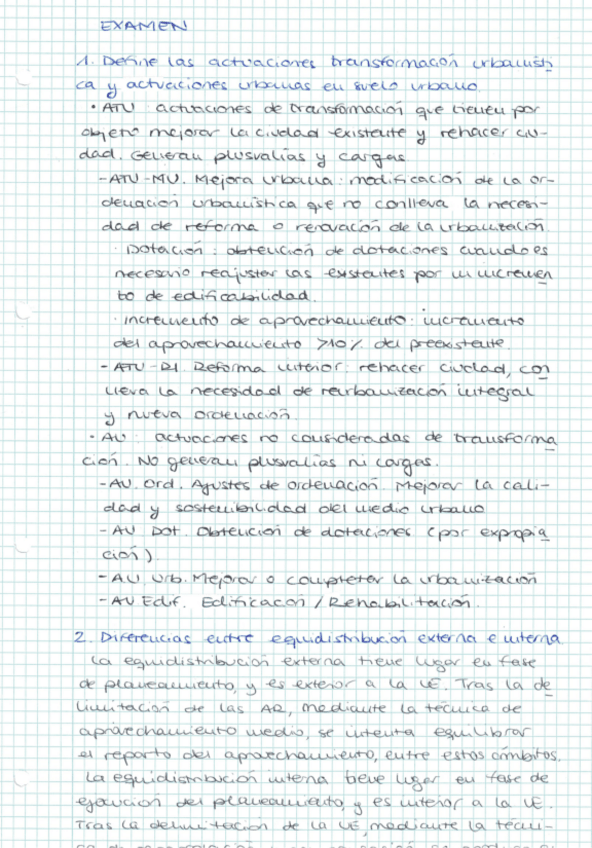 EXAMEN
1. Define las actuaciones transformación urbanísti
ca y actuaciones urbanas en suelo urbano.
• ATU: actuaciones de transformación que tienen por
objeto mejorar la ciudad existente y rehacer ciu-
dad. Generan plusvalías y cargas
- ATU-MU. Mejora urbana: modificación de la or-
denación urbanística que no conlleva la necesi-
dad de reforma o renovación de la urbanización
· Dotación: obtención de dotaciones cuando es
necesario reajustar las existentes por un incremen
to de edificabilidad.
· incremento de aprovechamiento: incremento
del aprovechamiento >10% del preexistente.
- ATU-RI. Reforma interior: rehacer ciudad, con
lleva la necesidad de reurbanización integral
y nueva ordenación.
• AU: actuaciones no consideradas de transforma
ción. No generan plusvalías ni cargas.
- AU. Ord. Ajustes de ordenación. Mejorar la cali-
dad y sostenibilidad del medio urbano
- AU Dot. Obtención de dotaciones (por expropia
ción)
- AU Urb. Mejorar o completar la urbanización
- AU Edif. Edificación / Rehabilitación.
2. Diferencias entre equidistribución externa e interna
La equidistribución externa tiene lugar en fase
de planeamiento, y es exterior a la UE. Tras la de
limitación de las AR, mediante la técnica de
aprovechamiento medio, se intenta equilibrar
el reparto del aprovechamiento, entre estos ámbitos.
La equidistribución interna tiene lugar en fase de
ejecución del planeamiento, y es interior a la UE.
Tras la delimitación de la UE, mediante la técni-